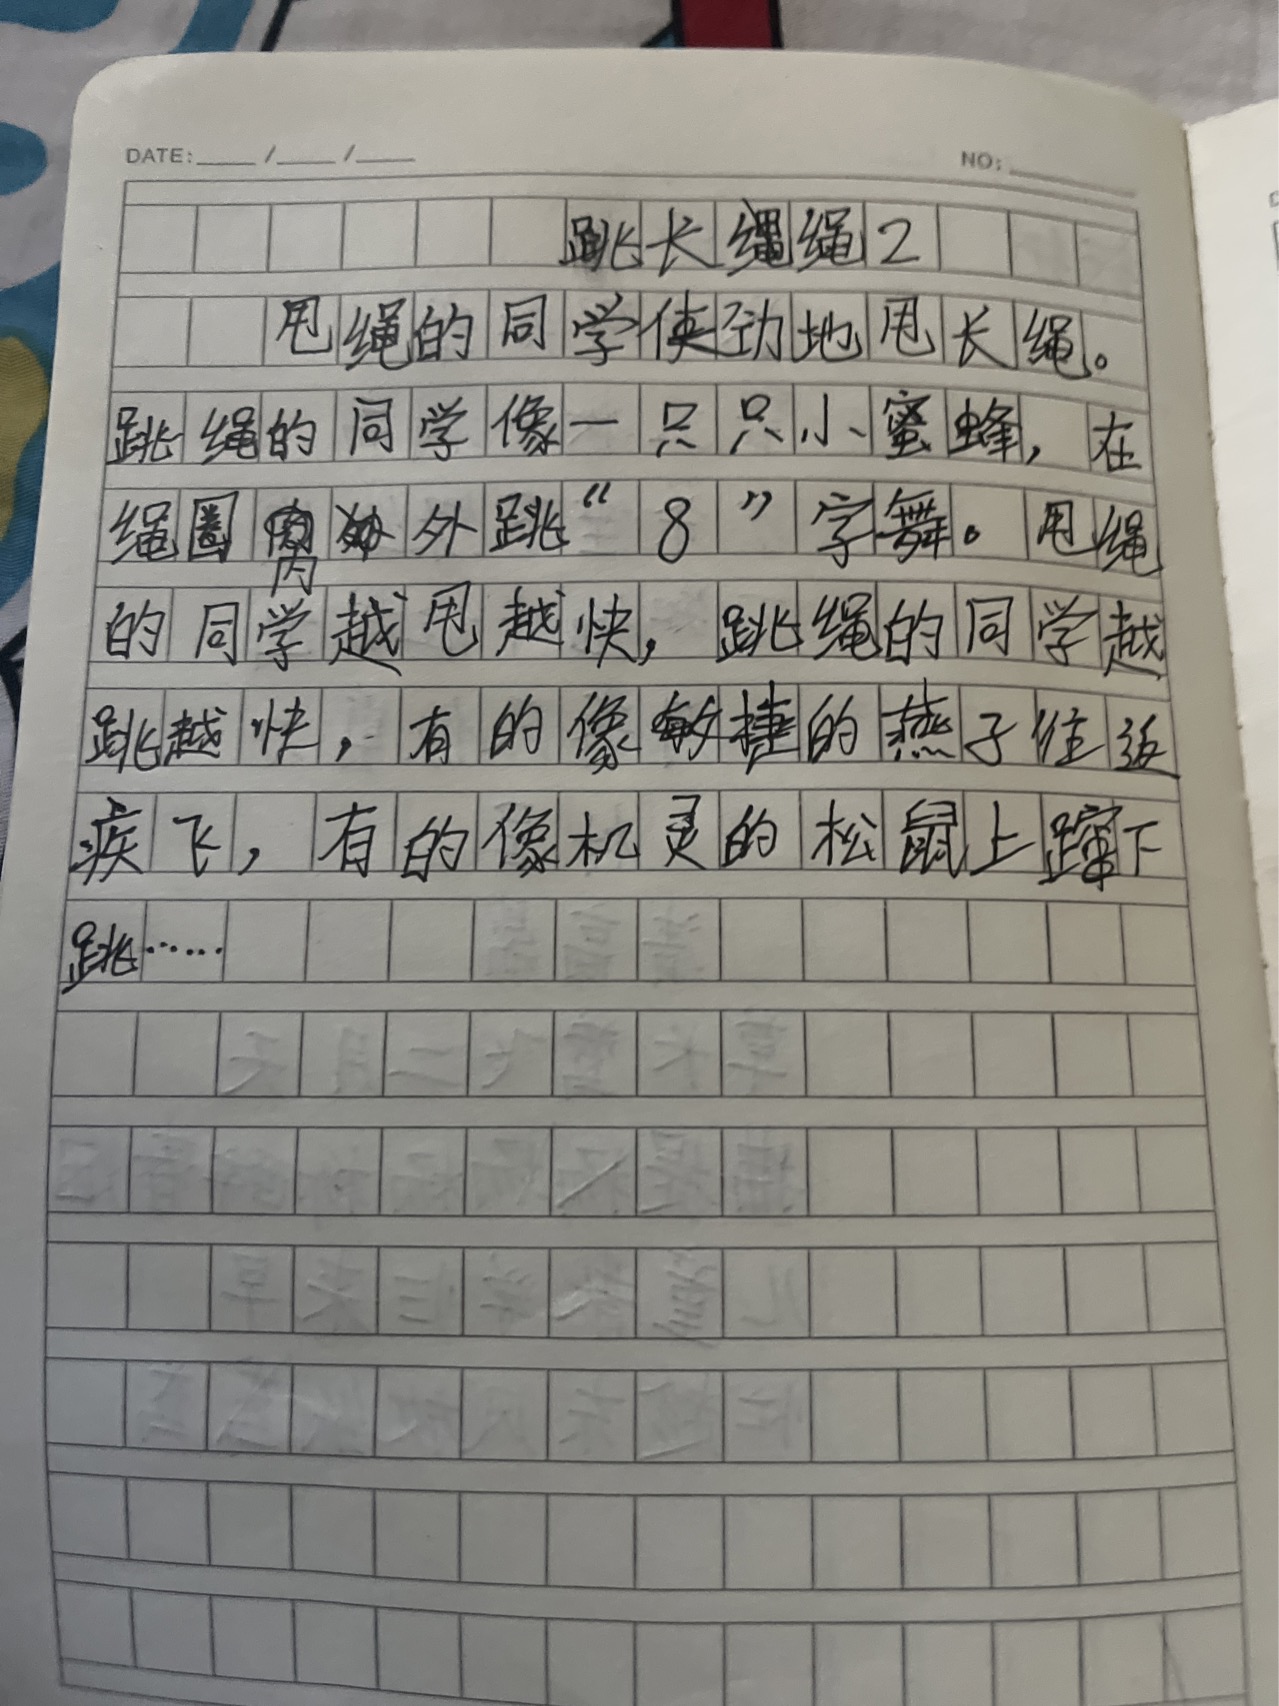 DATE: ____ / ____ / ____ NO: ________
跳长绳绳2
甩绳的同学使劲地甩长绳。
跳绳的同学像一只只小蜜蜂，在
绳圈内外跳“8”字舞。甩绳
的同学越甩越快，跳绳的同学越
跳越快，有的像敏捷的燕子往返
疾飞，有的像机灵的松鼠上蹿下
跳……